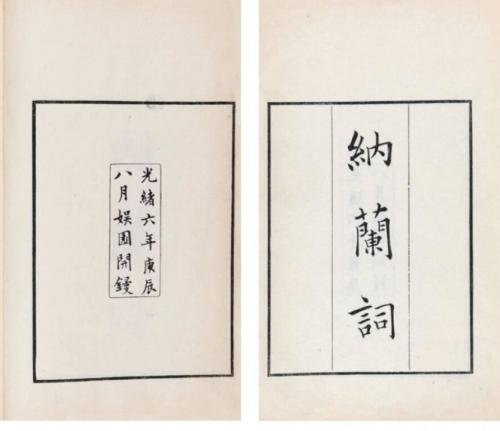 納蘭詞
光緒六年庚辰
八月娛園開鋟